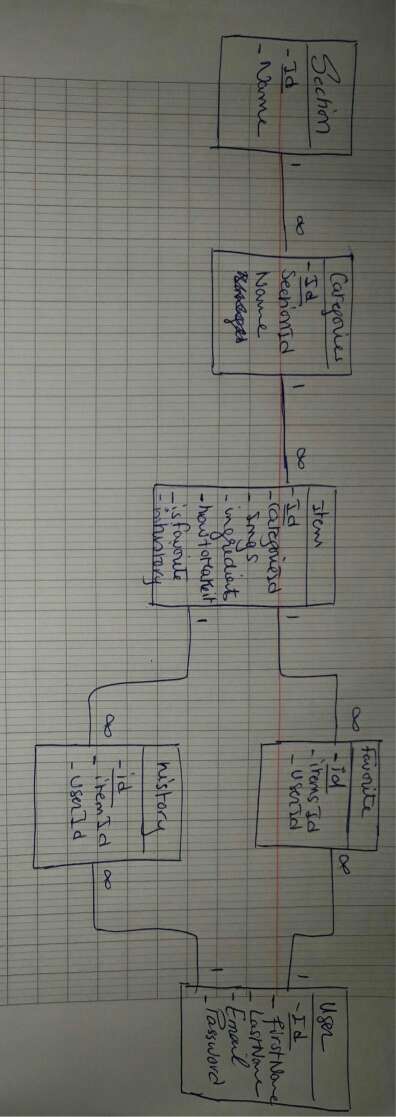 Section
- Id
- Name
1
∞
Categories
- Id
SectionId
Name
1
∞
Items
- Id
- CategorieId
- Imgs
- ingredients
- howToMakeit
- isfavorite
- inhistory
1
1
∞
∞
favorite
- id
- itemsId
- userId
history
- id
- itemId
- userId
∞
∞
1
1
User
- Id
- firstName
- LastName
- Email
- Password